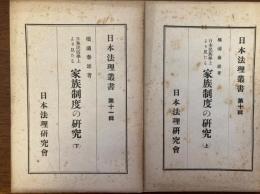 日本法理叢書 第十輯
橋浦泰雄著
日本民俗學上
より見たる
家族制度の研究 (上)
日本法理研究會
日本法理叢書 第十一輯
橋浦泰雄著
日本民俗學上
より見たる
家族制度の研究 (下)
日本法理研究會